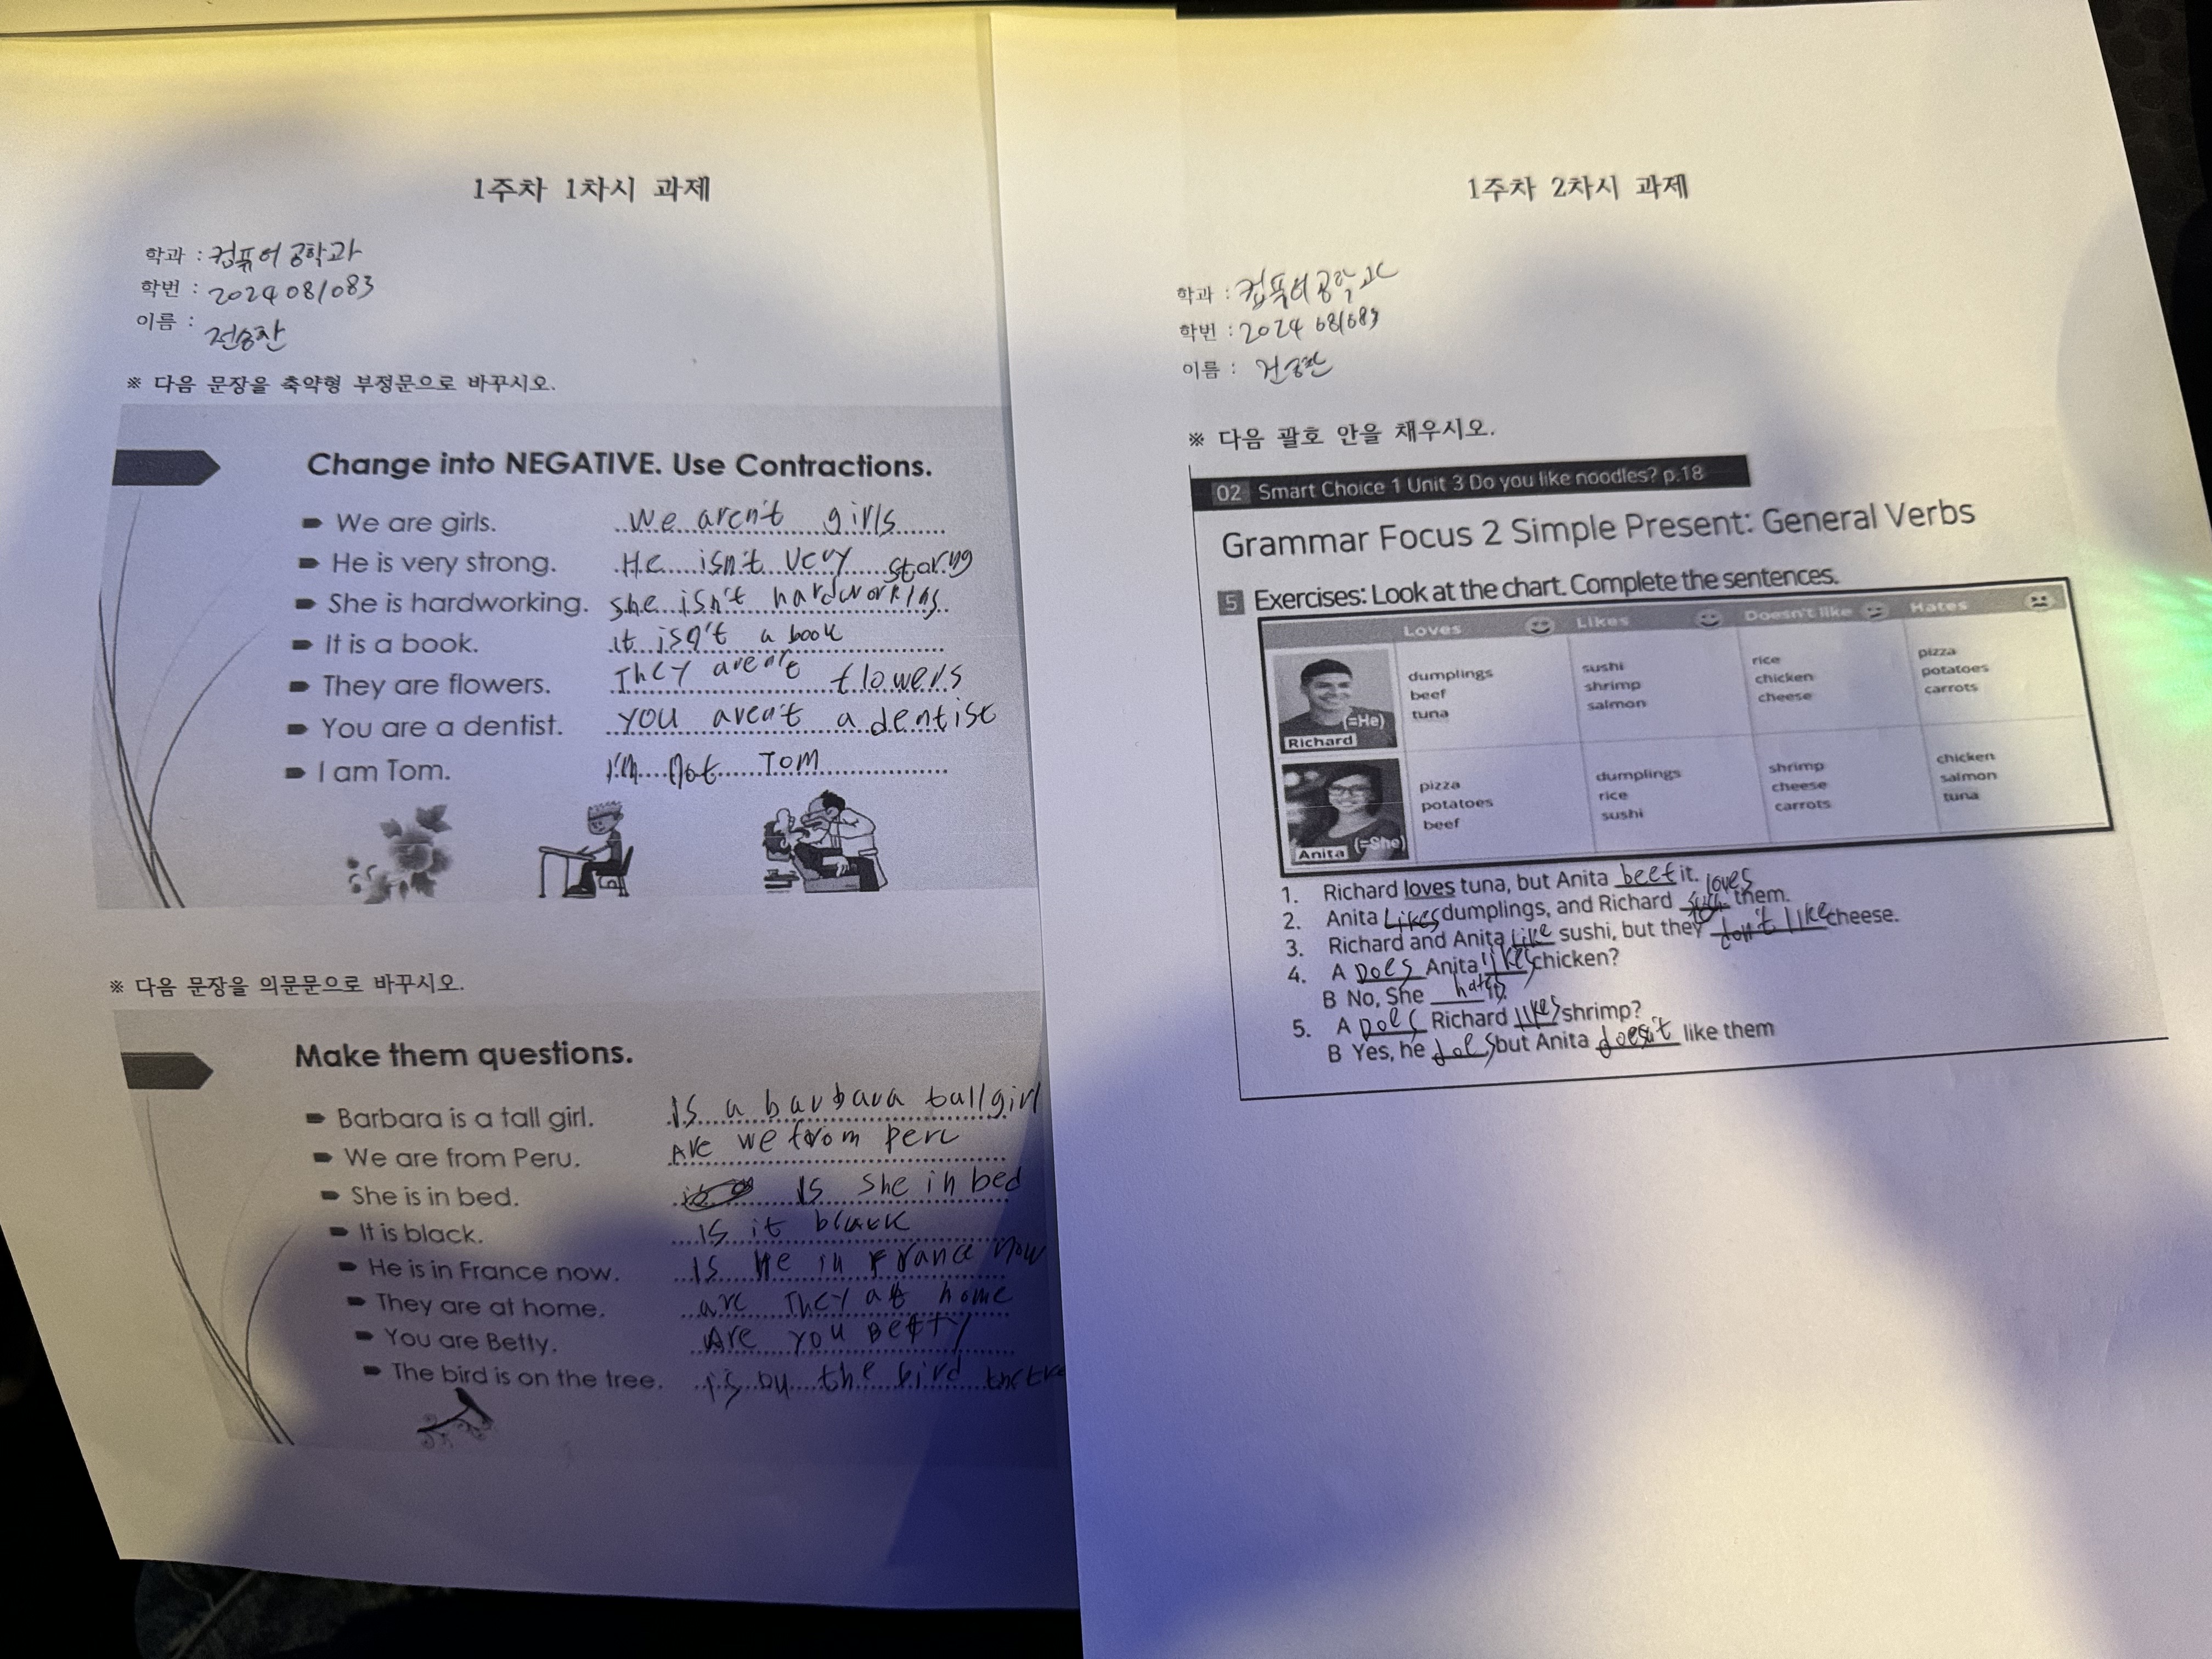 1주차 1차시 과제
학과 : 컴퓨어공학과
학번 : 202408/083
이름 :
※ 다음 문장을 축약형 부정문으로 바꾸시오.
Change into NEGATIVE. Use Contractions.
We are girls. We aren't girls
He is very strong. He isn't very starng
She is hardworking. she isn't hardworking
It is a book. it isn't a book
They are flowers. They aren't flowers
You are a dentist. you aren't a dentise
I am Tom. I'm not Tom
※ 다음 문장을 의문문으로 바꾸시오.
Make them questions.
Barbara is a tall girl. Is a barbara tall girl
We are from Peru. Are we from peru
She is in bed. Is she in bed
It is black. Is it black
He is in France now. Is He in France now
They are at home. are They at home
You are Betty. Are you betty
The bird is on the tree. the bird
1주차 2차시 과제
학과 :
학번 :
이름 :
※ 다음 괄호 안을 채우시오.
02 Smart Choice 1 Unit 3 Do you like noodles? p.18
Grammar Focus 2 Simple Present: General Verbs
5 Exercises: Look at the chart. Complete the sentences.
Loves Likes Doesn't like Hates
Richard (=He)
dumplings sushi rice pizza
beef shrimp chicken potatoes
tuna salmon cheese carrots
Anita (=She)
pizza dumplings shrimp chicken
potatoes rice cheese salmon
beef sushi carrots tuna
1. Richard loves tuna, but Anita beef it.
2. Anita Likes dumplings, and Richard loves them.
3. Richard and Anita Like sushi, but they don't like cheese.
4. A Does Anita likes chicken?
B No, She hates.
5. A Does Richard likes shrimp?
B Yes, he does but Anita doesn't like them